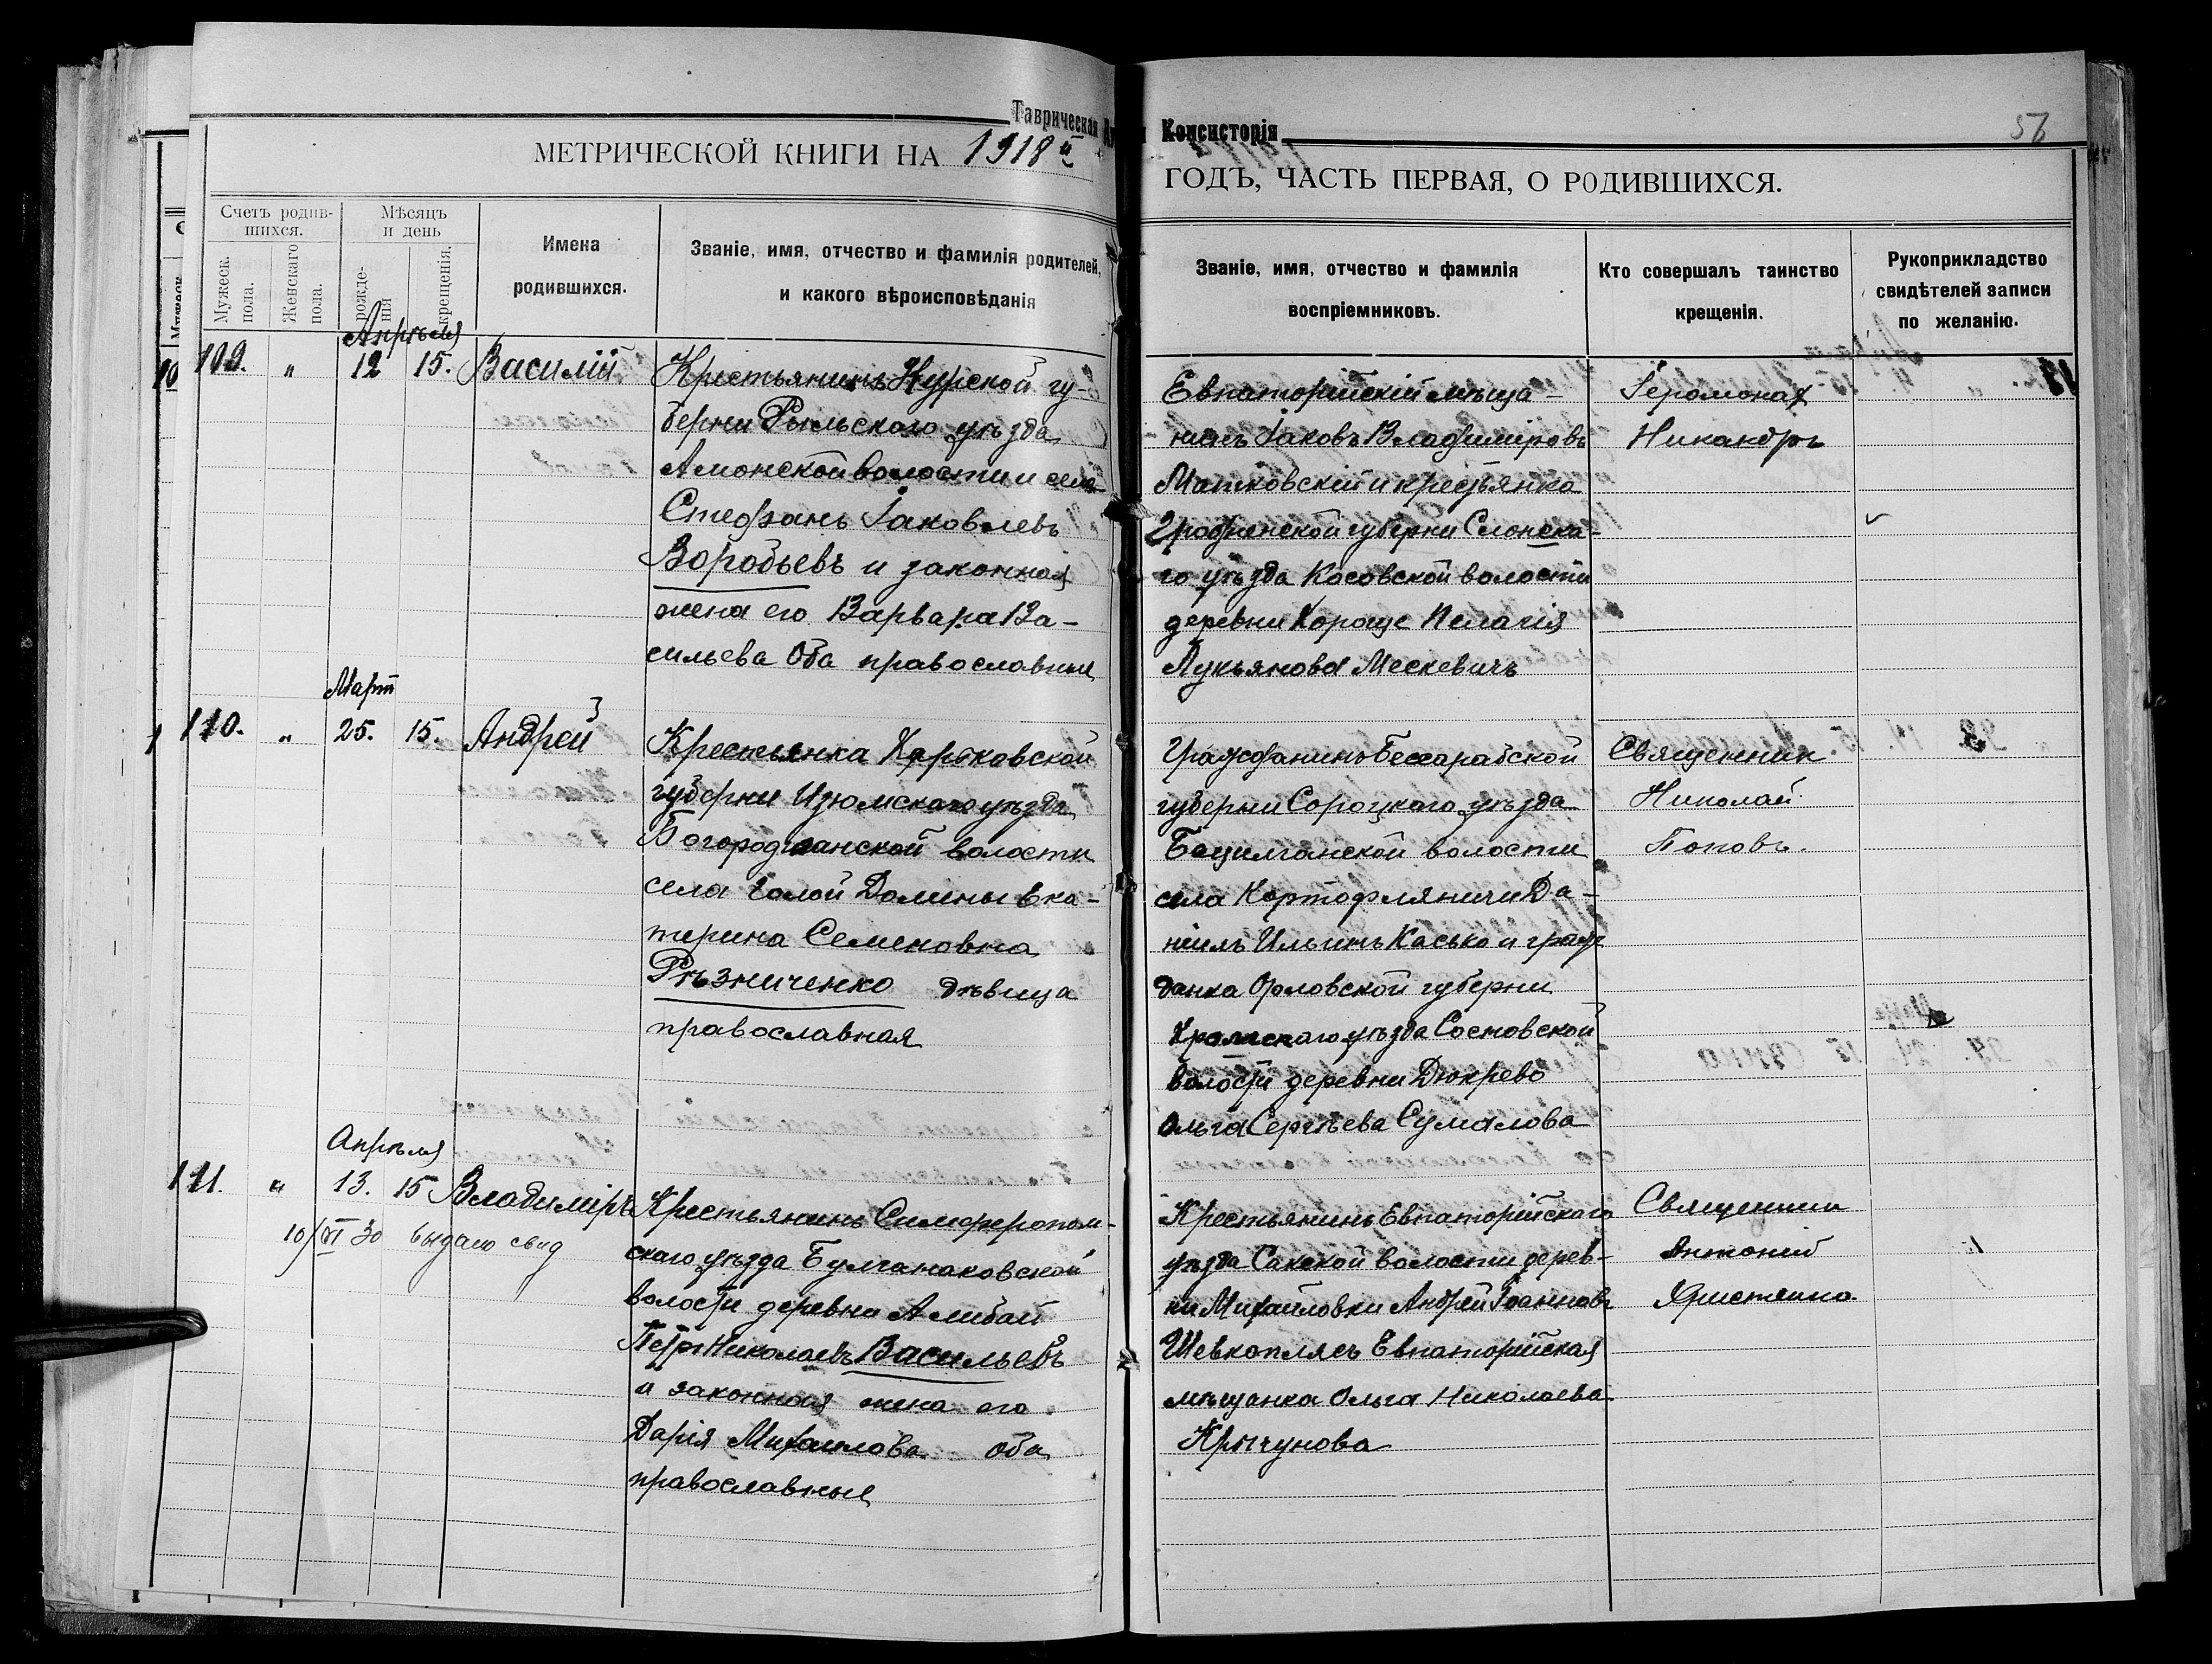 Таврическая
Консисторія
56
МЕТРИЧЕСКОЙ КНИГИ НА 1918 й
ГОДЪ, ЧАСТЬ ПЕРВАЯ, О РОДИВШИХСЯ.
Счетъ родив-
шихся.
Мужеск. пола.
Женскаго пола.
Мѣсяцъ
и день
рожде-
нія
крещенія.
Имена
родившихся.
Званіе, имя, отчество и фамилія родителей,
и какого вѣроисповѣданія
Званіе, имя, отчество и фамилія
воспріемниковъ.
Кто совершалъ таинство
крещенія.
Рукоприкладство
свидѣтелей записи
по желанію.
Апрѣля
109. " 12 15. Василій
Крестьянинъ Курской гу-
берни Рыльского уѣзда
Амонской волости и села
Стефанъ Іаковлевъ
Воробьевъ и законная
жена его Варвара Ва-
сильева Оба православные
Евпаторійскій мѣща-
нинъ Іаковъ Владиміровъ
Матковскій и крестьянка
Гродненской губерни Слонска-
го уѣзда Косовской волости
деревни Хороще Пелагія
Лукьянова Мескевичъ
Іеромонах
Никандръ
Март
110. " 25. 15. Андрей
Крестьянка Харьковской
губерни Изюмскаго уѣзда
Богородчанской волости
села Голой Долины Ека-
терина Семеновна
Рѣзниченко дѣвица
православная
Гражданинъ Бессарабской
губерни Сороцкого уѣзда
волости
села Картофляничи Да-
ніилъ Ильинъ Касько и граж
данка Орловской губерни
Кромскаго уѣзда Сосновской
волости деревни Дюкрево
Ольга Сергѣева Сумалова
Священник
Николай
Поповъ.
Апрѣля
111. " 13. 15 Владиміръ
10/VI 30 выдано свид
Крестьянинъ Симферополь-
скаго уѣзда Булганаковской
волости деревни Алибай
Петръ Николаевъ Васильевъ
и законная жена его
Дарія Михаилова оба
православные
Крестьянинъ Евпаторійскаго
уѣзда Сакской волости дерев-
ни Михайловки Андрей Іоанновъ
Шевкоплясъ Евпаторійская
мѣщанка Ольга Николаева
Крычунова
Священник
Антоній